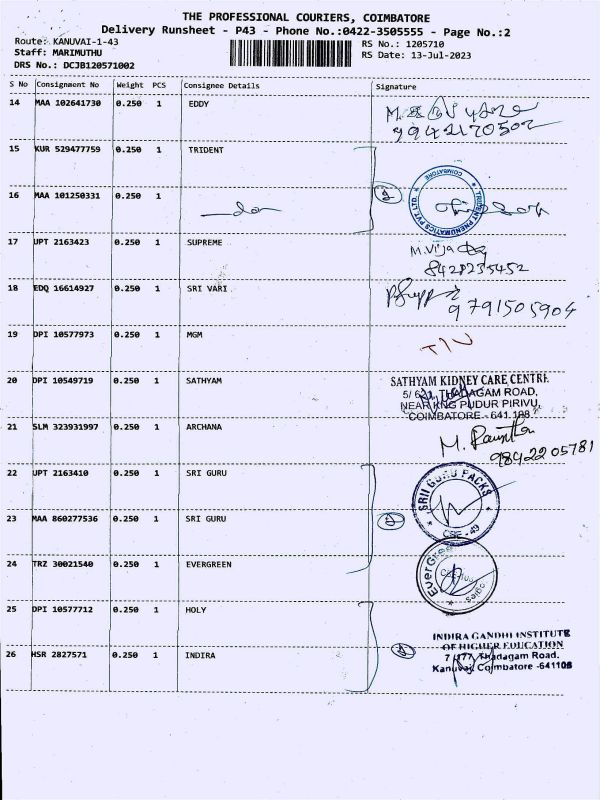 THE PROFESSIONAL COURIERS, COIMBATORE
Delivery Runsheet - P43 - Phone No.:0422-3505555 - Page No.:2
Route: KANUVAI-1-43
Staff: MARIMUTHU
DRS No.: DCJB120571002
RS No.: 1205710
RS Date: 13-Jul-2023
S No Consignment No Weight PCS Consignee Details Signature
14 MAA 102641730 0.250 1 EDDY
9942170502
15 KUR 529477759 0.250 1 TRIDENT
16 MAA 101250331 0.250 1
2
TRIDENT PNEUMATICS PVT. LTD.
COIMBATORE
17 UPT 2163423 0.250 1 SUPREME
M.Vija
8428235452
18 EDQ 16614927 0.250 1 SRI VARI
9791505904
19 DPI 10577973 1.000 1 MGM
20 DPI 10549719 0.250 1 SATHYAM
SATHYAM KIDNEY CARE CENTRE
THADAGAM ROAD,
NEAR KNG PUDUR PIRIVU,
COIMBATORE - 641 108
21 SLM 323931997 0.250 1 ARCHANA
M.
98422 05781
22 UPT 2163410 0.250 1 SRI GURU
SRII GURU PACKS
CBE - 49
23 MAA 860277536 0.250 1 SRI GURU
24 TRZ 30021540 0.250 1 EVERGREEN
25 DPI 10577712 0.250 1 HOLY
26 HSR 2827571 0.250 1 INDIRA
INDIRA GANDHI INSTITUTE
OF HIGHER EDUCATION
Thadagam Road.
Kanuvai, Coimbatore -641108